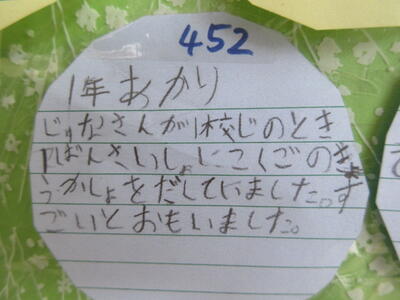 452
1年 あかり
じゅなさんが1校じのとき
1ばんさいしょにこくごのきょ
うかしょをだしていました。す
ごいとおもいました。